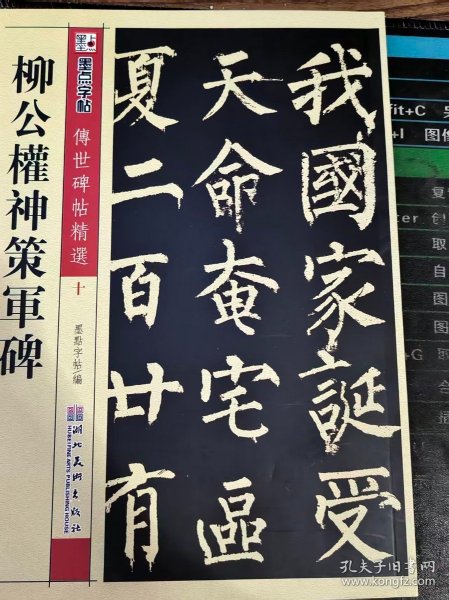 柳公權神策軍碑
墨点
墨点字帖
傳世碑帖精選
十
墨點字帖/編
湖北美術出版社
HUBEI FINE ARTS PUBLISHING HOUSE
我國家誕受
天命奄宅區
夏二百廿有
+C
+I 图像
复
创
取
自
图
图
+G 取
合
孔夫子旧书网
www.kongfz.com